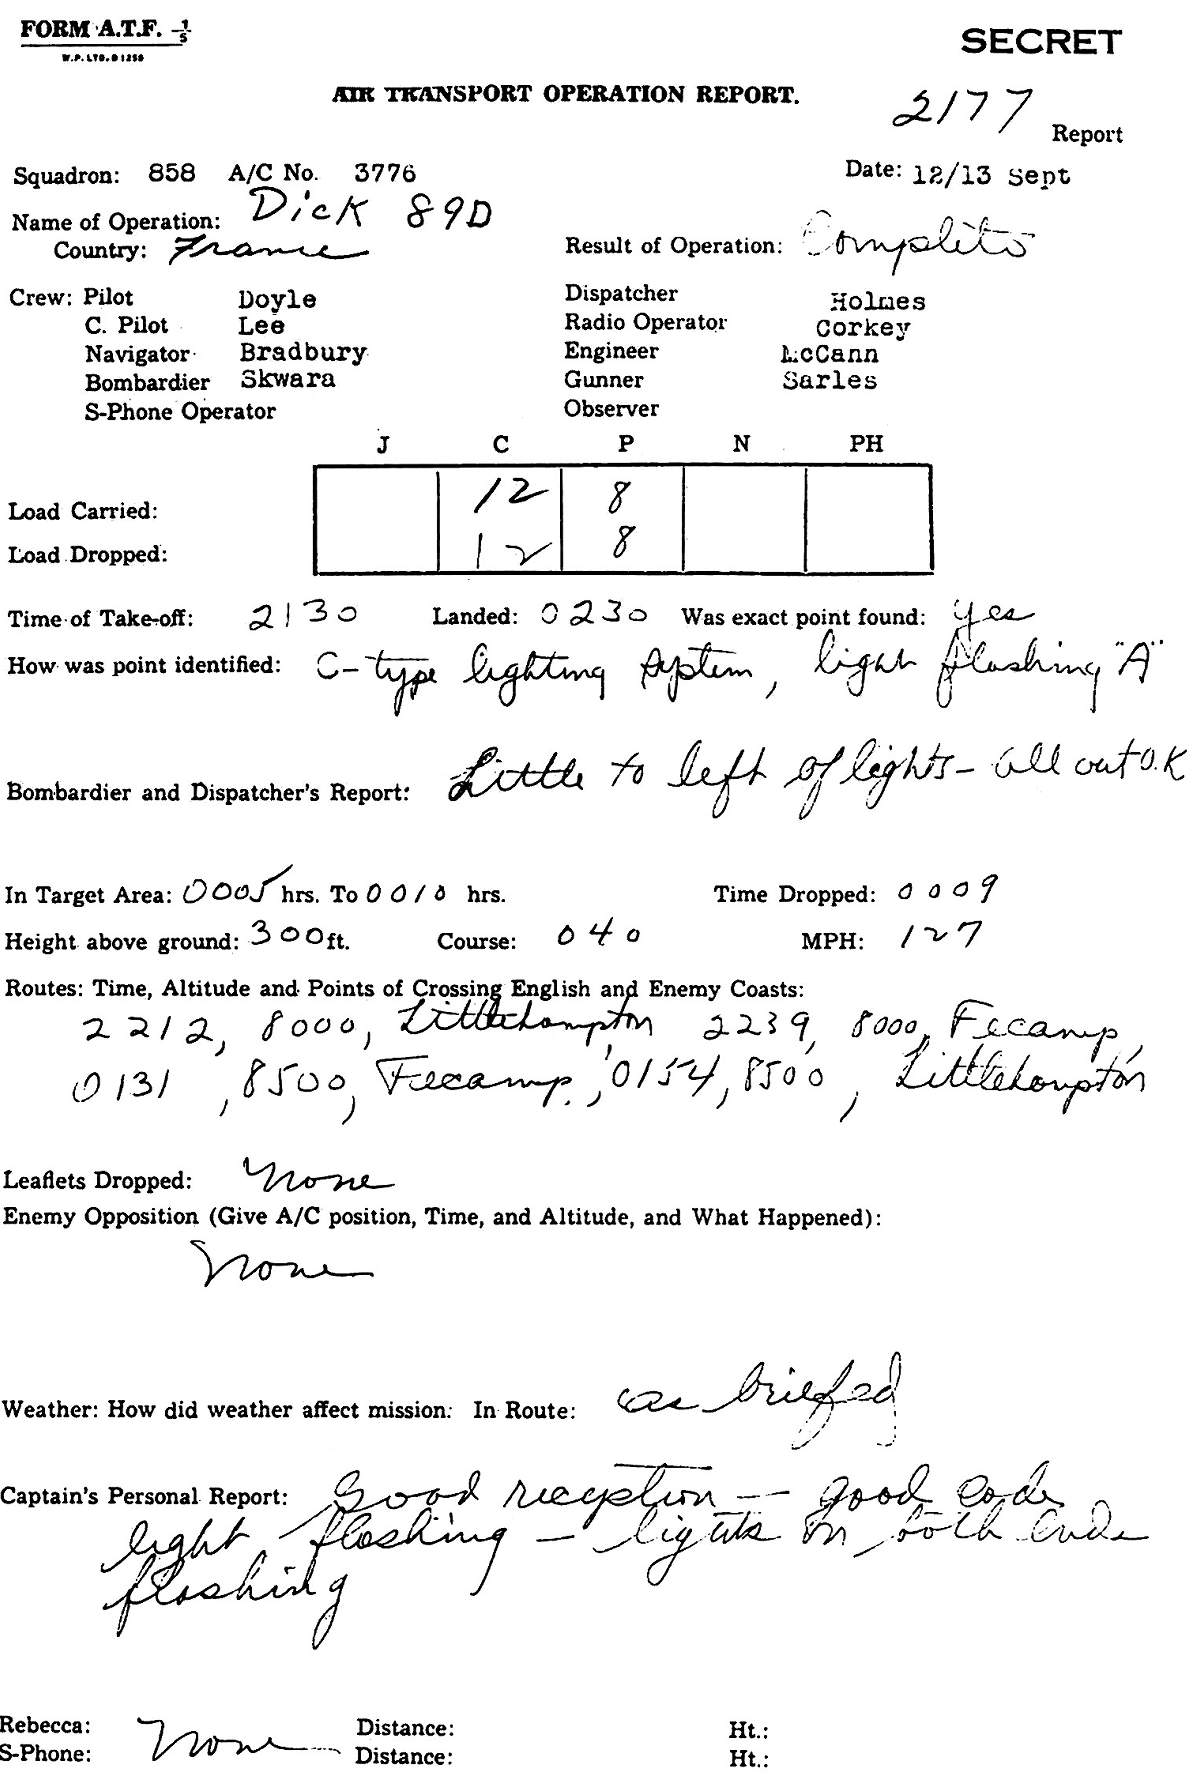 FORM A.T.F. 1/5
W.P. LTD. D1256
SECRET
AIR TRANSPORT OPERATION REPORT.
2177 Report
Squadron: 858 A/C No. 3776 Date: 12/13 Sept
Name of Operation: Dick 89D
Country: France Result of Operation: Complete
Crew: Pilot Doyle Dispatcher Holmes
C. Pilot Lee Radio Operator Corkey
Navigator Bradbury Engineer McCann
Bombardier Skwara Gunner Sarles
S-Phone Operator Observer
J C P N PH
Load Carried: 12 8
Load Dropped: 12 8
Time of Take-off: 2130 Landed: 0230 Was exact point found: Yes
How was point identified: C-type lighting system, light flashing "A"
Bombardier and Dispatcher's Report: Little to left of lights - all out O.K
In Target Area: 0005 hrs. To 0010 hrs. Time Dropped: 0009
Height above ground: 300 ft. Course: 040 MPH: 127
Routes: Time, Altitude and Points of Crossing English and Enemy Coasts:
2212, 8000, Littlehampton 2239, 8000, Fecamp,
0131, 8500, Fecamp, 0154, 8500, Littlehampton
Leaflets Dropped: None
Enemy Opposition (Give A/C position, Time, and Altitude, and What Happened):
None
Weather: How did weather affect mission: In Route: as briefed
Captain's Personal Report: Good reception — good code
light flashing — lights on both ends
flashing
Rebecca: None Distance: Ht.:
S-Phone: Distance: Ht.: